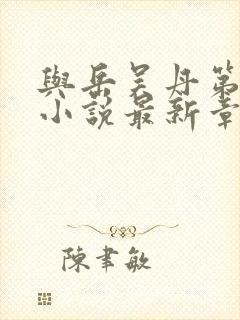 與岳吴丹第
小說最新章
陳聿敏